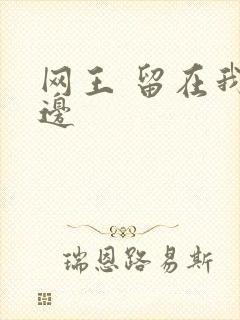 网王 留在我
邊
瑞恩路易斯